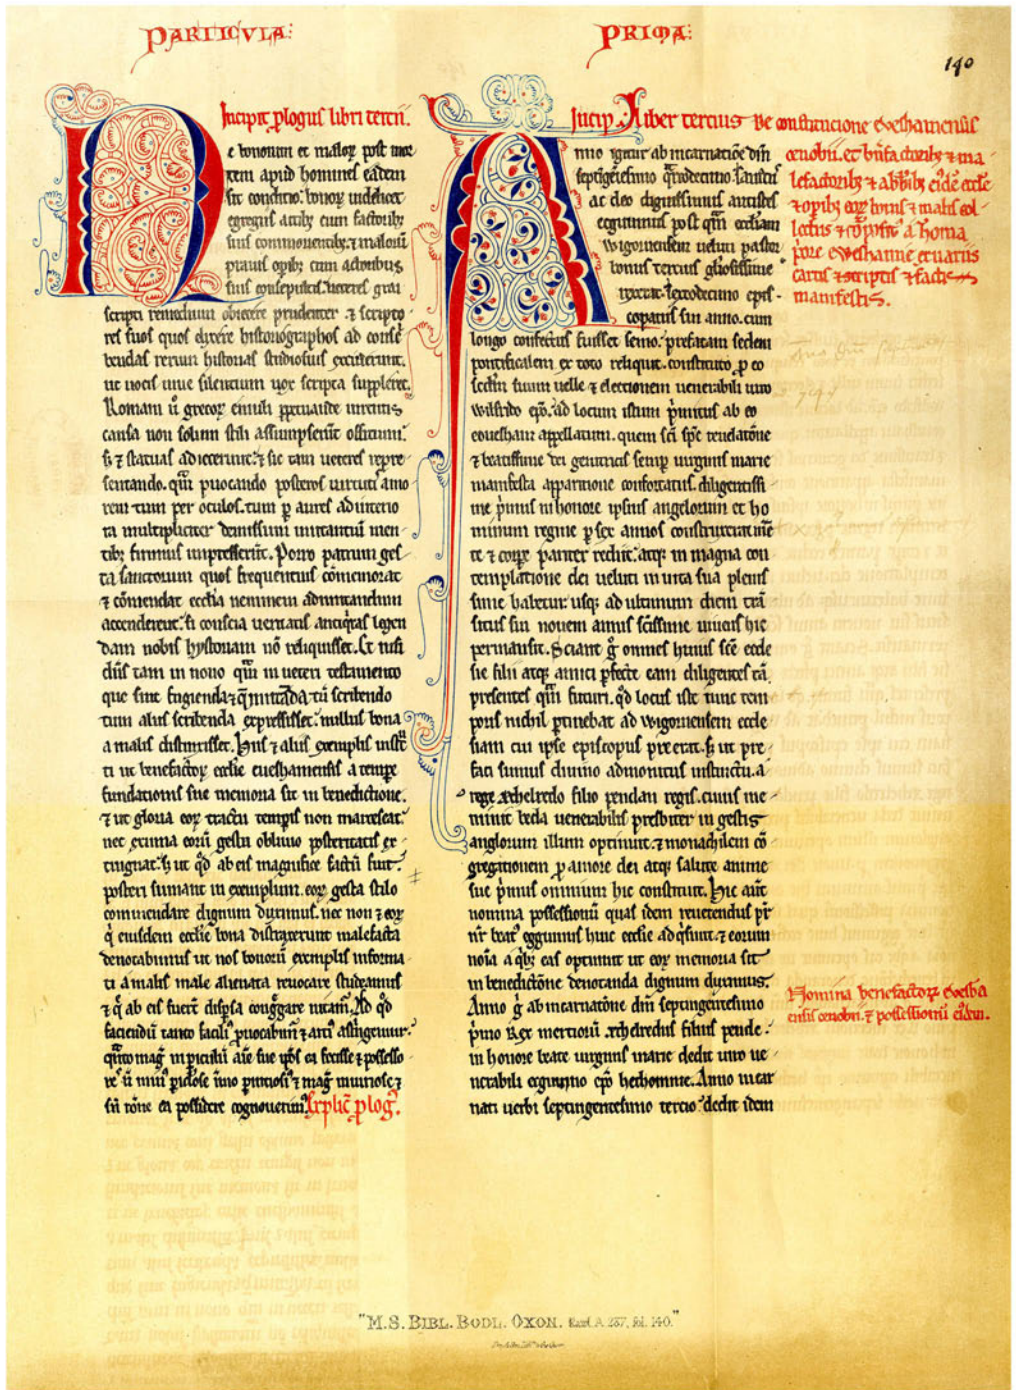 PARTICVLA:
PRIMA:
140
Incipit plogus libri tercii.
De bonorum et malor post mor
tem apud homines eadem
sit conditio. bonor uidelicet
egregiis actib; cum factorib;
suis
prauis opib; cum actoribus
suis ueteres gnai
scripti remedium obicere prudenter. ⁊ scripto
res suos quos dicere historiographos ad conscri
bendas rerum historias studiosius excitarunt.
ut uocis uiue silentium uox scripta suppleret.
Romani u grecor emuli
causa non solum stili assumpserunt officium.
s; ⁊ statuas adiecerunt. ⁊ sic tam ueteres repre
sentando. qm puocando posteros uirtutis amo
rem tum per oculos. tum p aures ad interio
ra multipliciter demissum imitantiu men
tib; firmius impresserunt. Porro patrum ges
ta sanctorum quos frequentius comemorat
⁊ comendat ecclia neminem ad imitandum
accenderent. si conscia ueritatis antiqtas legen
dam nobis hystoriam no reliquisset. Et nisi
dns tam in nouo qm in ueteri testamento
que sint fugienda ⁊ q imitada. tu scribendo
tum aliis scribenda expressisset. nullus bona
a malis distinxisset. Hiis ⁊ aliis exemplis instc
ti ut benefactor ecclie eueshamensis a tempe
fundationis sue memoria sit in benedictione.
⁊ ut gloria eor tractu tempis non marcescat.
nec eximia eoru gesta obliuio posteritatis ex
tinguat. s; ut qd ab eis magnifice factu fuit.
posteri sumant in exemplum. eor gesta stilo
commendare dignum duximus. nec non ⁊ eor
q eiusdem ecclie bona distraxerunt malefacta
denotabimus ut nos bonoru exemplis informa
ti a malis male alienata reuocare studeamus
⁊ q ab eis fuert dispsa conggare nitam. Ad qd
faciendu tanto facili puocabim ⁊ arti astrigemur.
qnto mag in piculu aie sue ipsos ea fecisse ⁊ possesso
⁊ mag iniuriose ⁊
sn rone ea possidere cognouerim. Explic plog.
Incip. Liber tercius de constitucione Eveshamensis
cenobii. et bnfactorib; ⁊ ma
lefactorib; ⁊ abbib; eide ecclie
⁊ opib; eor bonis ⁊ malis col
lectus ⁊ copositus a Thoma
priore Eveshamie ex uariis
cartis ⁊ scriptis ⁊ factis
manifestis.
Anno igitur ab incarnatioe dni
septigentesimo
ac deo dignissimus antistes
ecgwinus post qm eccliam
wigornensem ueluti pastor
bonus tercius gliosissime
rexerat. sextodecimo epis
copatus sui anno. cum
longo confectus fuisset senio. prefatam sedem
pontificalem ex toto reliquit. constituto p eo
scdm suum uelle ⁊ electionem uenerabili uiro
wilfrido epo. ad locum istum pmitus ab eo
euesham appellatum. quem sci sps reuelatone
⁊ beatissime dei genitricis semp uirginis marie
manifesta apparitione confortatus. diligentissi
me pmus in honore ipsius angelorum et ho
minum regine p sex annos construxerat. me
te ⁊ corpe pariter rediit. atq; in magna con
templatione dei ueluti in uita sua plenis
sime habetur. usq; ad ultimum diem tra
situs sui nouem annis scissime uiuens hic
permansit. Sciant g omnes huius sce eccle
sie filii atq; amici pfecte eam diligentes ta
presentes qm futuri. qd locus iste tunc tem
poris nichil ptinebat ad wigornensem eccle
siam cui ipse episcopus preerat. s; ut pre
fati sumus diuino admonitus instinctu. a
rege ethelredo filio pendan regis. cuius me
minit beda uenerabilis presbiter in gestis
anglorum illum optinuit. ⁊ monachilem co
gregationem p amore dei atq; salute anime
sue pmus omnium hic constituit. Hic aut
nomina possessionu quas idem reuerendus pr
nr beat egguuinus huic ecclie adqsiuit. ⁊ eorum
noia a qb; eas optinuit ut eor memoria sit
in benedictone denotanda dignum duximus.
Anno g ab incarnatone dni septingentesimo
pmo Rex merciorú ethelredus filius pende.
in honore beate uirginis marie dedit uiro ue
nerabili ecguuino epo hethomme. Anno incar
nati uerbi septingentesimo tercio. dedit idem
Nomina benefactor Evesha
ensis cenobii. ⁊ possessionu eidem.
"M.S. BIBL. BODL. OXON. Rawl. A. 287, fol. 140."